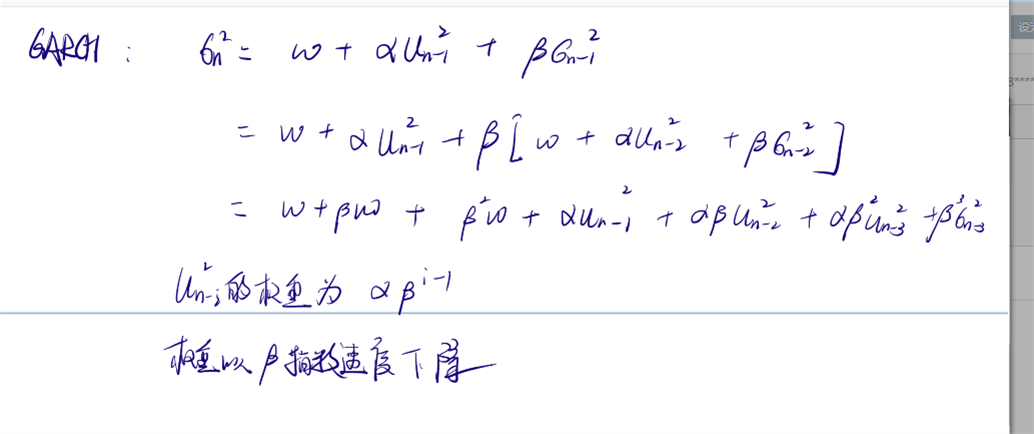 GARCH: σn² = w + αUn-1² + βσn-1²
= w + αUn-1² + β[w + αUn-2² + βσn-2²]
= w + βw + β²w + αUn-1² + αβUn-2² + αβ²Un-3² + β³σn-3²
Un-i²的权重为 αβ^i-1
权重以β指数速度下降